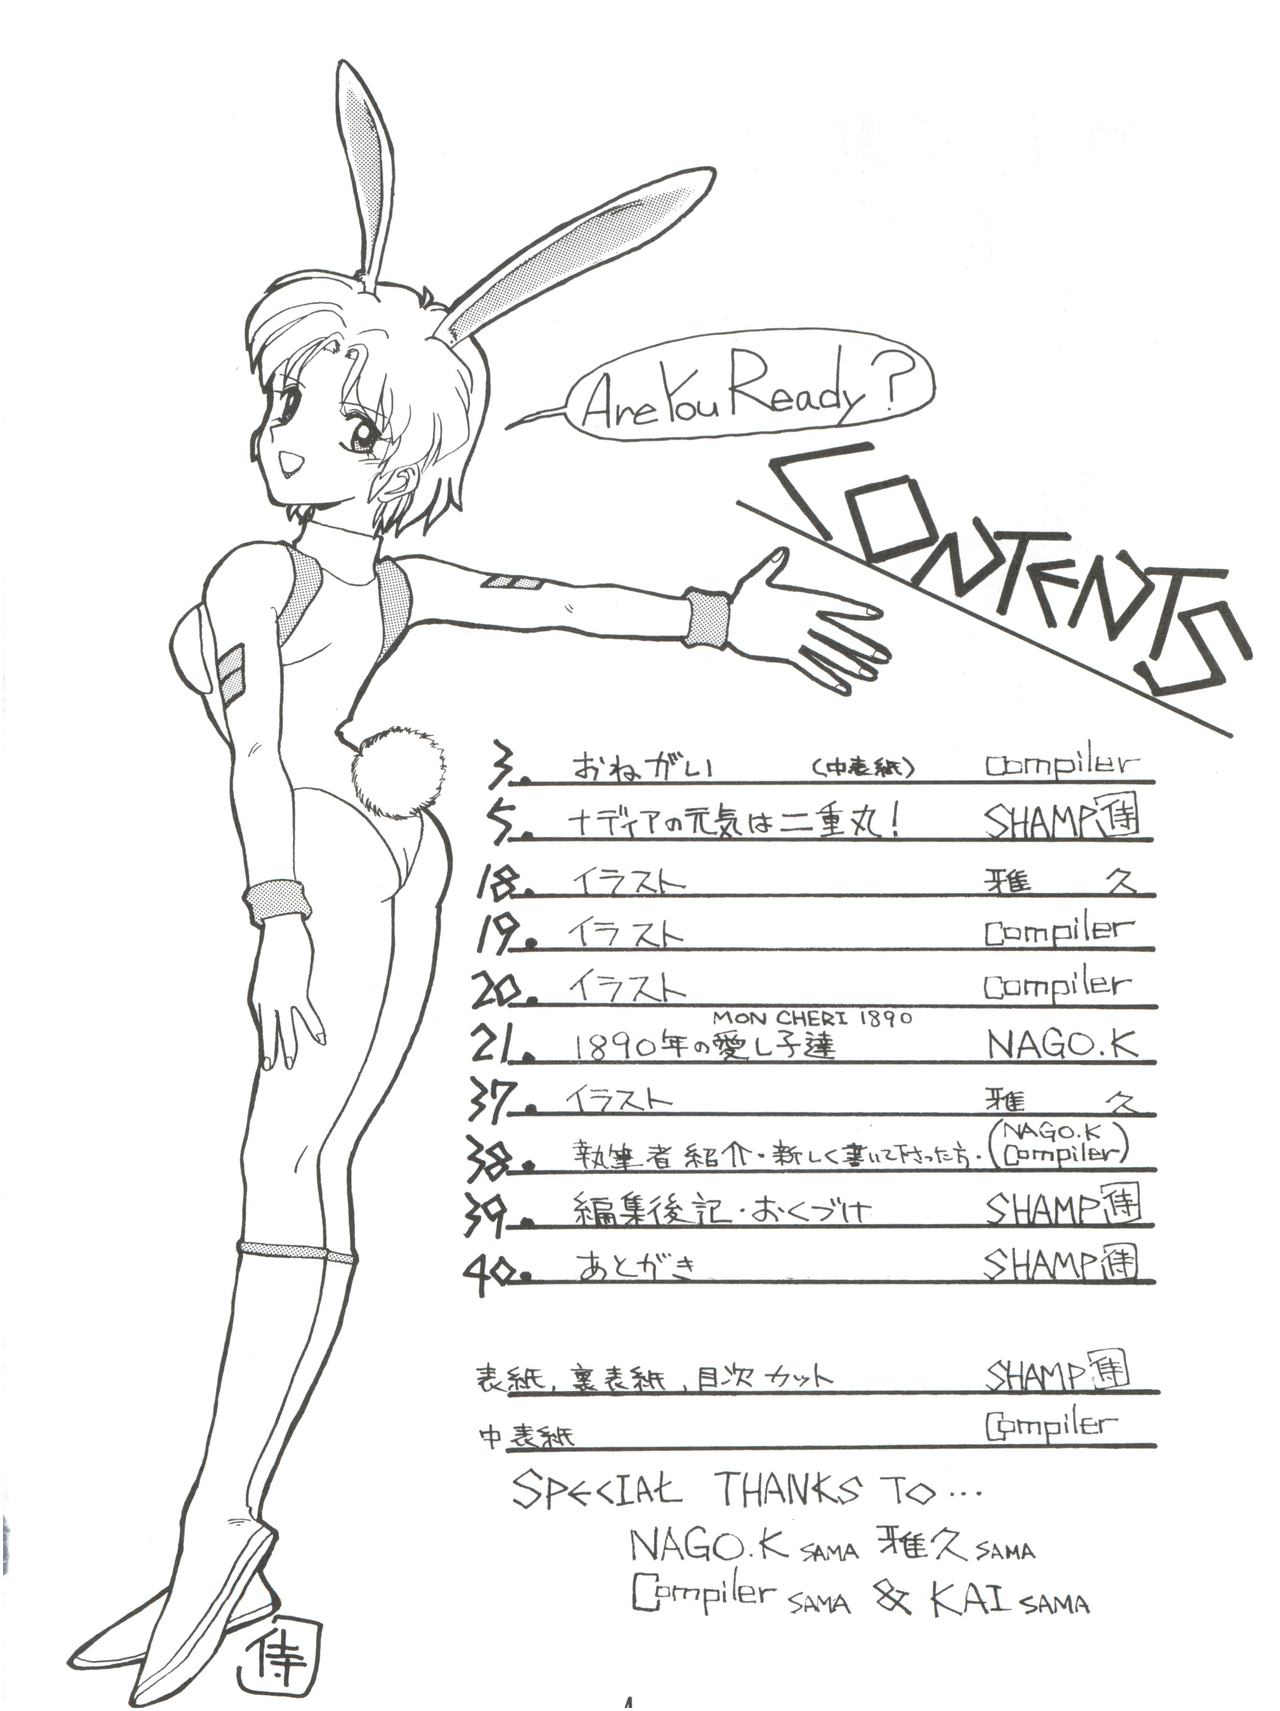 Are You Ready?
CONTENTS
3. おねがい (中表紙) Compiler
5. ナディアの元気は二重丸! SHAMP侍
18. イラスト 雅久
19. イラスト Compiler
20. イラスト Compiler
MON CHERI 1890
21. 1890年の愛し子達 NAGO.K
37. イラスト 雅久
38. 執筆者紹介・新しく書いて下さった方・(NAGO.K Compiler)
39. 編集後記・おくづけ SHAMP侍
40. あとがき SHAMP侍
表紙,裏表紙,目次カット SHAMP侍
中表紙 Compiler
SPECIAL THANKS TO...
NAGO.K SAMA 雅久 SAMA
Compiler SAMA & KAI SAMA
侍
4